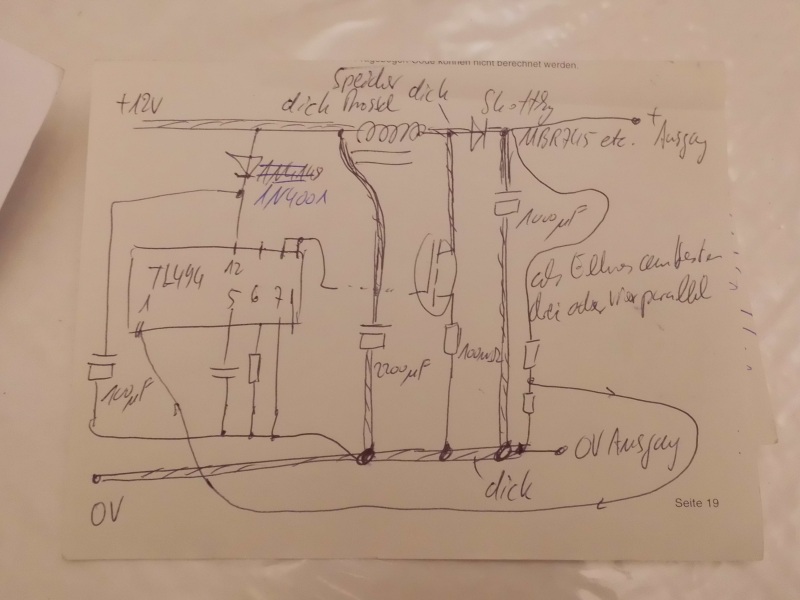 können nicht berechnet werden.
+12V
Speicher
dick Drossel dick
Shottky
MBR745 etc.
+
Ausgang
1N4148
1N4001
1000µF
TL494
12
1
5 6 7
als Elkos am besten
drei oder vier parallel
100µF
2200µF
100mΩ
0V Ausgang
dick
0V
Seite 19